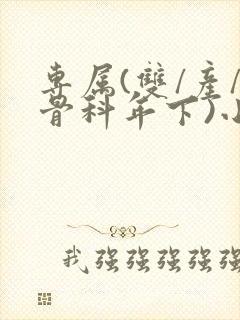 專属(雙/產/
骨科年下)
我强强强强强